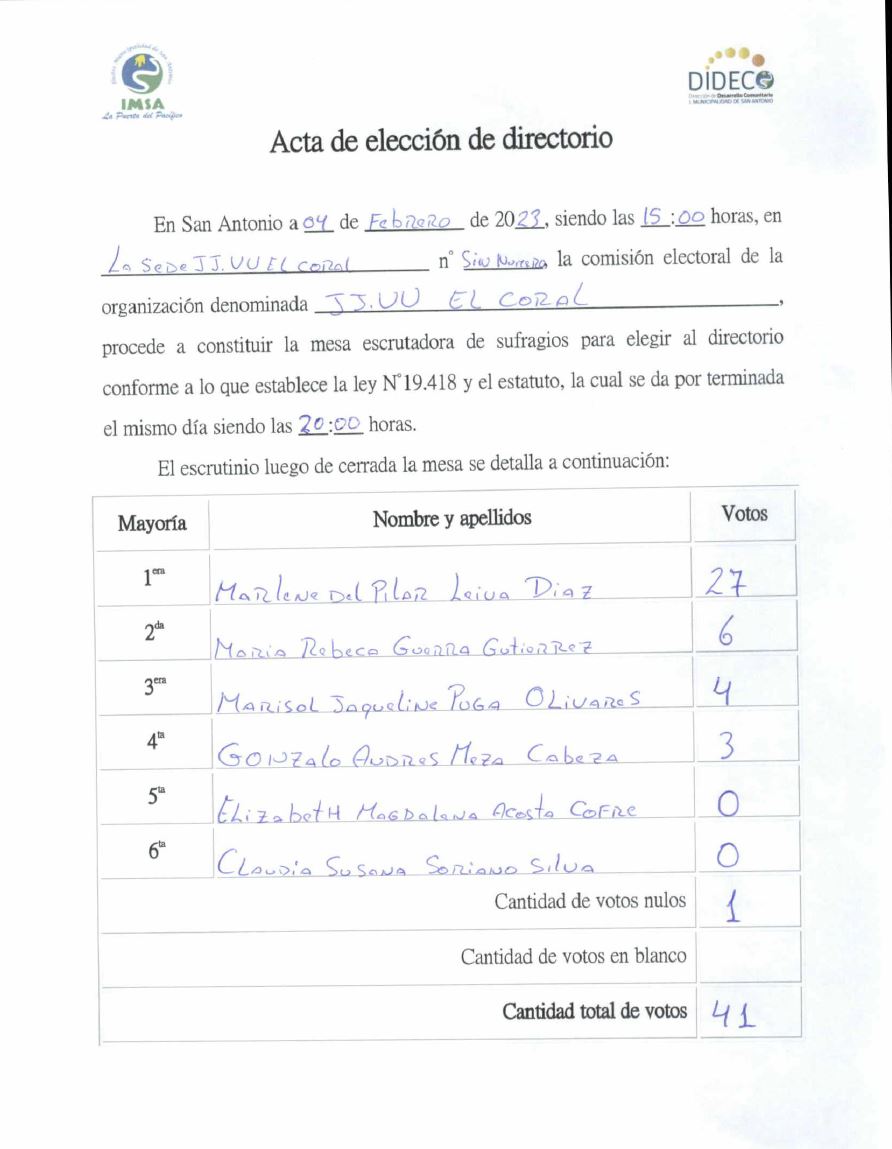 IMSA
La Puerta del Pacífico
DIDECO
Dirección de Desarrollo Comunitario
I. MUNICIPALIDAD DE SAN ANTONIO
Acta de elección de directorio
En San Antonio a 04 de Febrero de 2023, siendo las 15:00 horas, en
La Sede JJ.VV EL coral n° Sin Numero la comisión electoral de la
organización denominada JJ.VV EL CORAL,
procede a constituir la mesa escrutadora de sufragios para elegir al directorio
conforme a lo que establece la ley N°19.418 y el estatuto, la cual se da por terminada
el mismo día siendo las 20:00 horas.
El escrutinio luego de cerrada la mesa se detalla a continuación:
Mayoría Nombre y apellidos Votos
1era Marlene Del Pilar Leiva Diaz 27
2da Maria Rebeca Guerra Gutierrez 6
3era Marisol Jaqueline Puga Olivares 4
4ta Gonzalo Andres Meza Cabeza 3
5ta Elizabeth Magdalena Acosta Cofre 0
6ta Claudia Susana Soriano Silva 0
Cantidad de votos nulos 1
Cantidad de votos en blanco
Cantidad total de votos 41